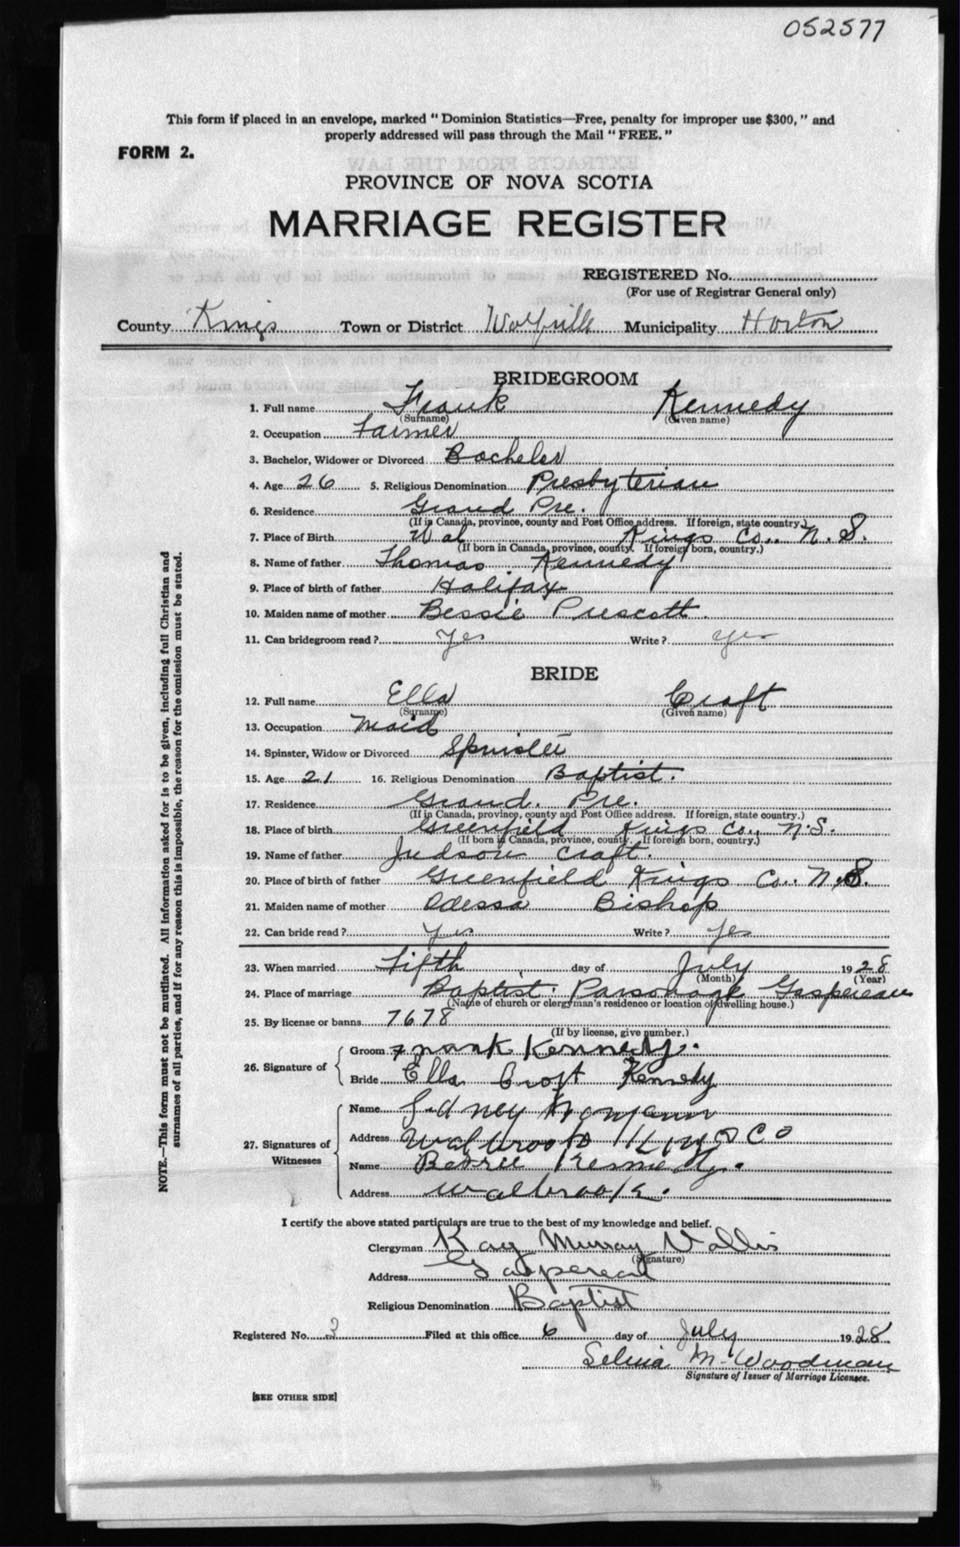 052577
This form if placed in an envelope, marked "Dominion Statistics—Free, penalty for improper use $300," and
properly addressed will pass through the Mail "FREE."
FORM 2.
EXTRACTS FROM THE LAW
PROVINCE OF NOVA SCOTIA
MARRIAGE REGISTER
REGISTERED No.
(For use of Registrar General only)
County Kings Town or District Wolfville Municipality Horton
BRIDEGROOM
1. Full name Frank Kennedy
(Surname) (Given name)
2. Occupation Farmer
3. Bachelor, Widower or Divorced Bachelor
4. Age 26 5. Religious Denomination Presbyterian
6. Residence Grand Pre.
(If in Canada, province, county and Post Office address. If foreign, state country.)
7. Place of Birth Wal Kings Co.. N.S.
(If born in Canada, province, county. If foreign born, country.)
8. Name of father Thomas Kennedy
9. Place of birth of father Halifax
10. Maiden name of mother Bessie Prescott.
11. Can bridegroom read? Yes Write? Yes
BRIDE
12. Full name Ella Craft
(Surname) (Given name)
13. Occupation Maid
14. Spinster, Widow or Divorced Spinster
15. Age 21 16. Religious Denomination Baptist.
17. Residence Grand. Pre.
(If in Canada, province, county and Post Office address. If foreign, state country.)
18. Place of birth Greenfield Kings Co., N.S.
(If born in Canada, province, county. If foreign born, country.)
19. Name of father Judson Craft.
20. Place of birth of father Greenfield Kings Co.. N.S.
21. Maiden name of mother Odessa Bishop
22. Can bride read? Yes Write? Yes
23. When married Fifth day of July 1928
(Month) (Year)
24. Place of marriage Baptist Parsonage Gaspereau
(Name of church or clergyman's residence or location of dwelling house.)
25. By license or banns 7678
(If by license, give number.)
26. Signature of
Groom Frank Kennedy.
Bride Ella Croft Kennedy
27. Signatures of Witnesses
Name Sidney
Address Walbrook Kings Co
Name Kennedy.
Address Walbrook.
I certify the above stated particulars are true to the best of my knowledge and belief.
Clergyman Ray Murray Vallis
(Signature)
Address Gaspereau
Religious Denomination Baptist
Registered No. 3 Filed at this office 6 day of July 1928
Selina M. Woodman
Signature of Issuer of Marriage Licenses.
[SEE OTHER SIDE]
NOTE.—This form must not be mutilated. All information asked for is to be given, including full Christian and
surnames of all parties, and if for any reason this is impossible, the reason for the omission must be stated.